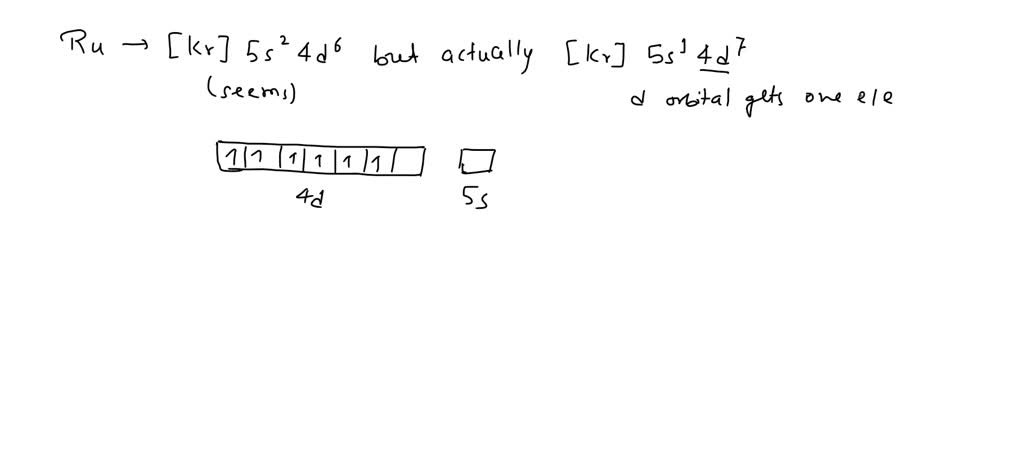 Ru → [Kr] 5s² 4d⁶ but actually [Kr] 5s¹ 4d⁷
(seems) d orbital gets one e/e
1 1 1 1 1 1
4d 5s